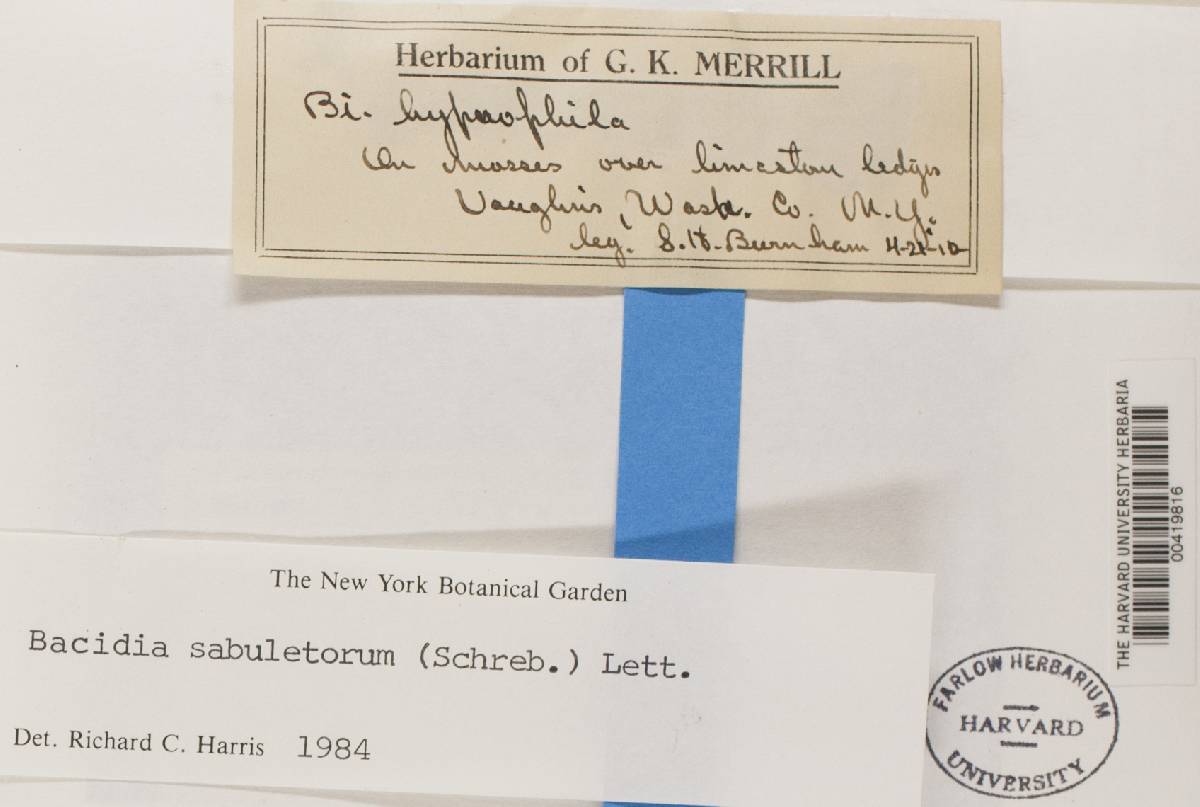 Herbarium of G. K. MERRILL
Bi. hypnophila
On mosses over limeston ledges
Vaughns, Wash. Co. N.Y.
leg. S.H. Burnham 4-21-10
THE HARVARD UNIVERSITY HERBARIA
00419816
The New York Botanical Garden
Bacidia sabuletorum (Schreb.) Lett.
Det. Richard C. Harris 1984
FARLOW HERBARIUM
HARVARD
UNIVERSITY